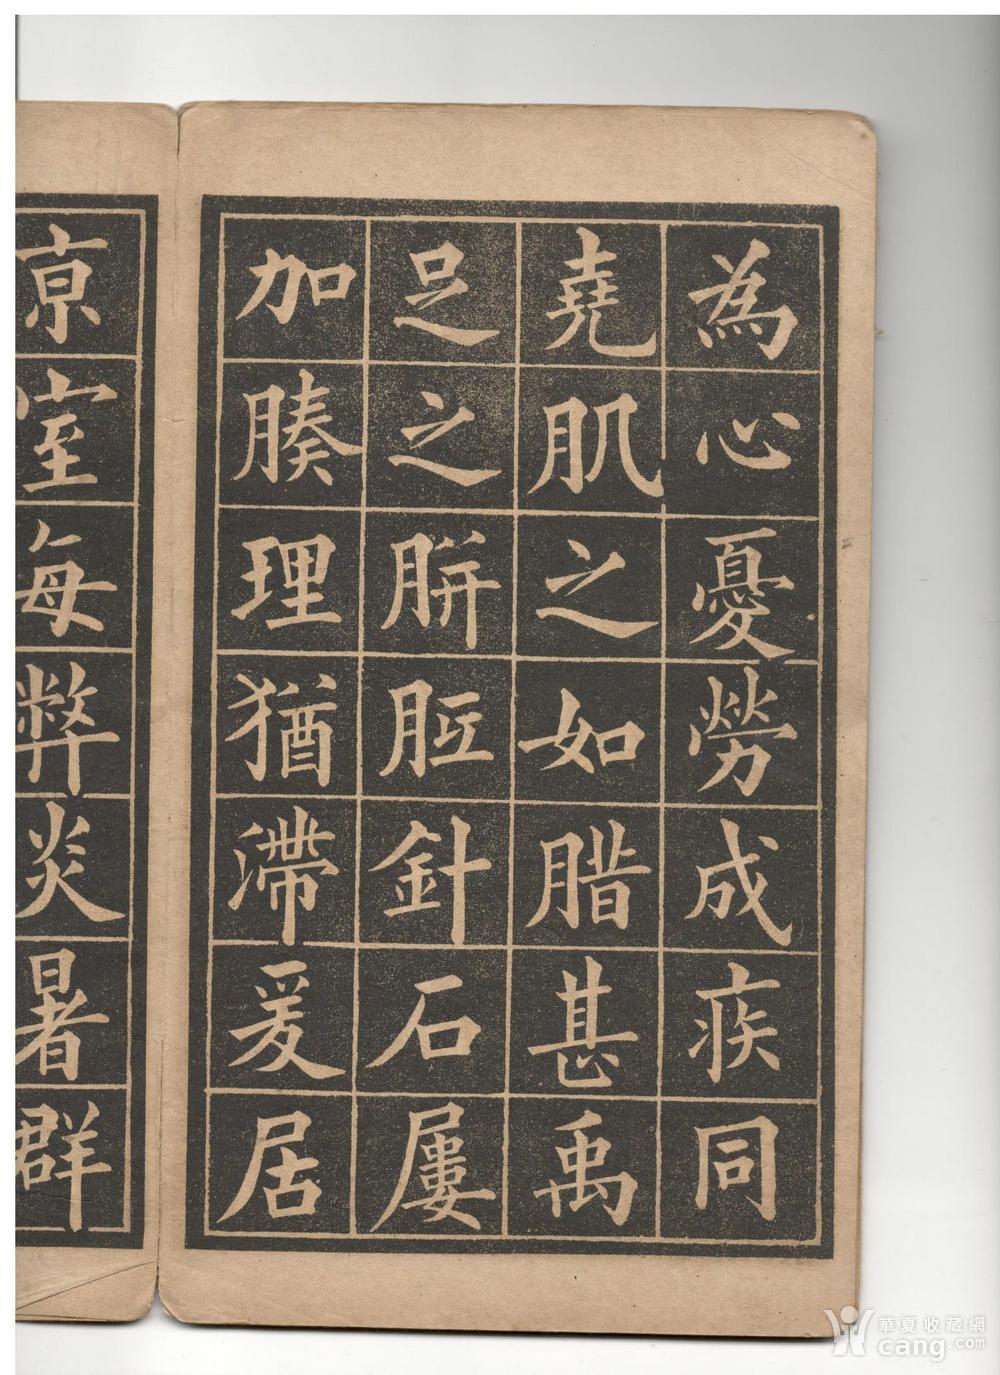 為心憂勞成疾同
堯肌之如腊甚禹
足之胼胝針石屢
加腠理猶滯爰居
京室每弊炎暑群
華夏收藏網
cang.com